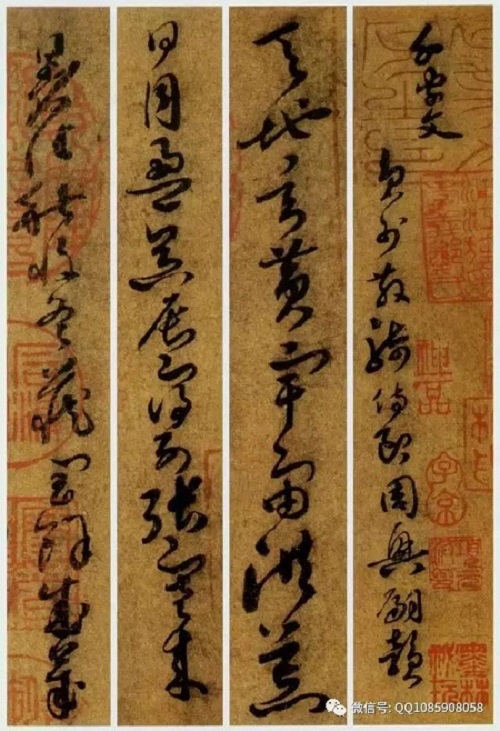 千字文
員外散騎侍郎周興嗣韻
天地玄黃宇宙洪荒
日月盈昃辰宿列張寒來
暑往秋收冬藏閏餘成歲
神品
子京
微信号: QQ1085908058